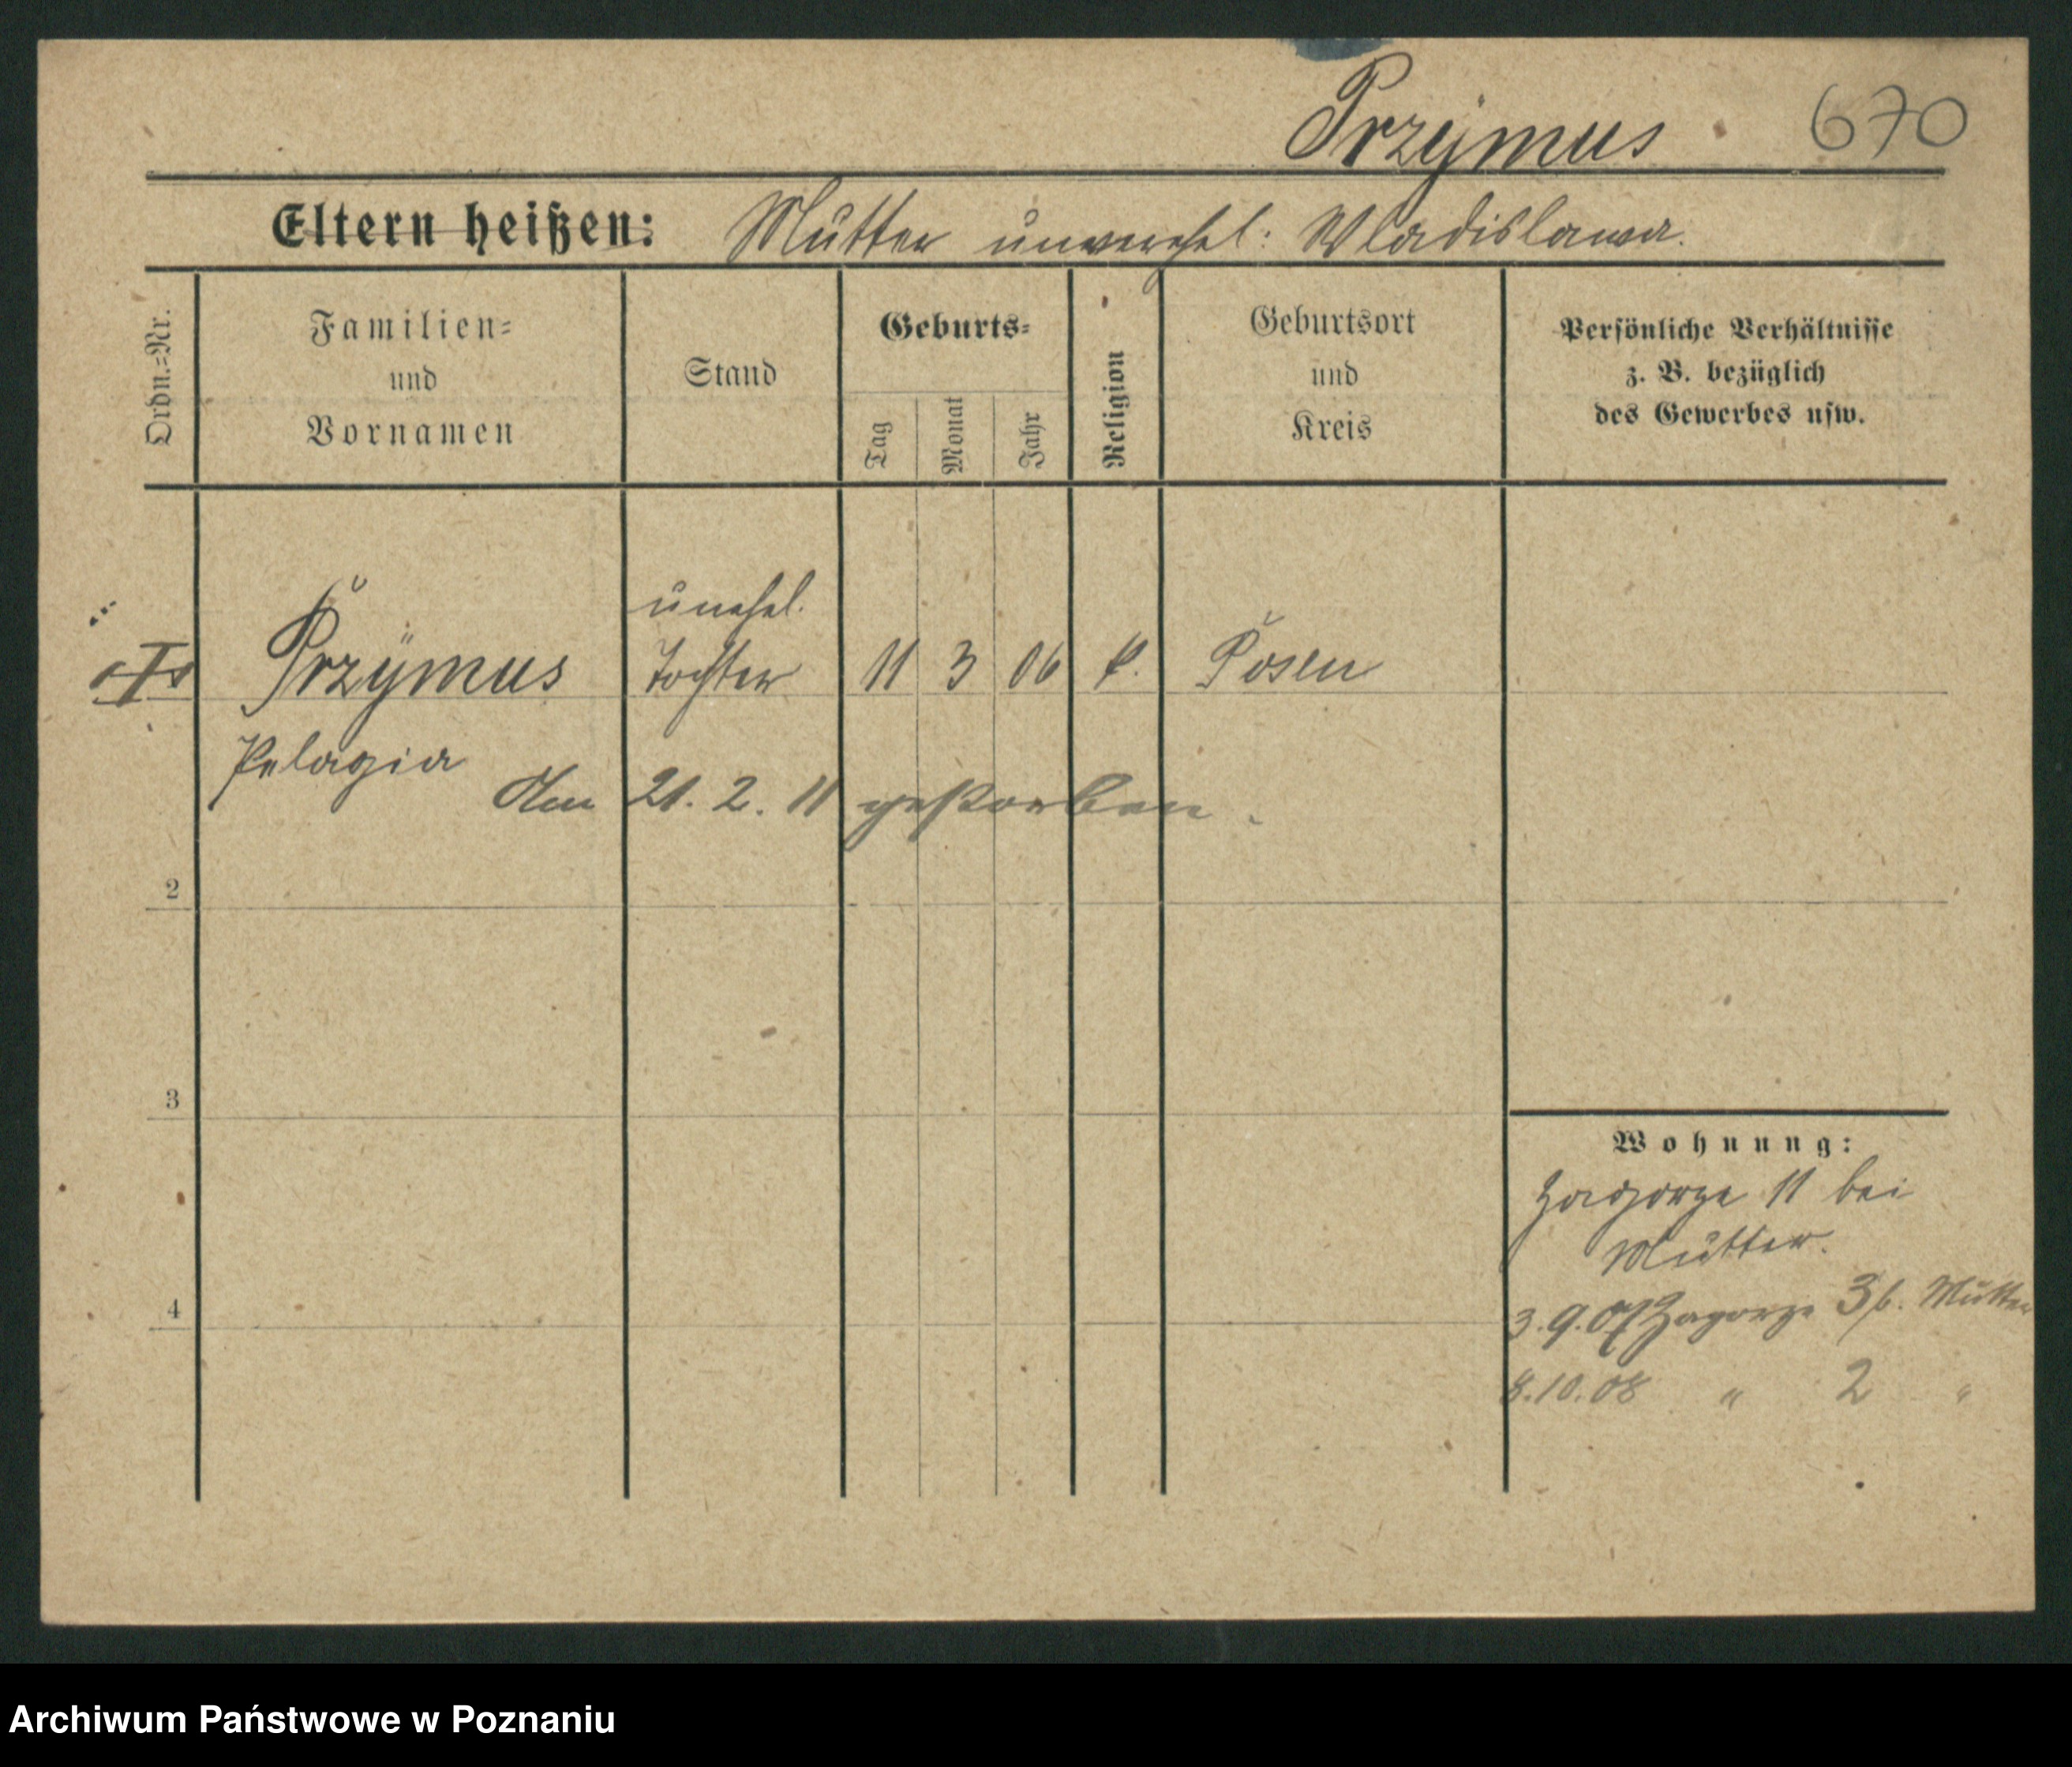 Przymus 670
Eltern heißen: Mutter unverehel: Wladislawa.
Ordn.-Nr.
Familien-
und
Vornamen
Stand
Geburts-
Tag
Monat
Jahr
Religion
Geburtsort
und
Kreis
Persönliche Verhältnisse
z. B. bezüglich
des Gewerbes usw.
unehel.
Przymus Tochter 11 3 06 k. Posen
Pelagia
Am 21. 2. 11 gestorben.
2
3
4
Wohnung:
Zagorze 11 bei
Mutter.
3.9.07 Zagorze 3 b. Mutter
8.10.08 " 2 "
Archiwum Państwowe w Poznaniu